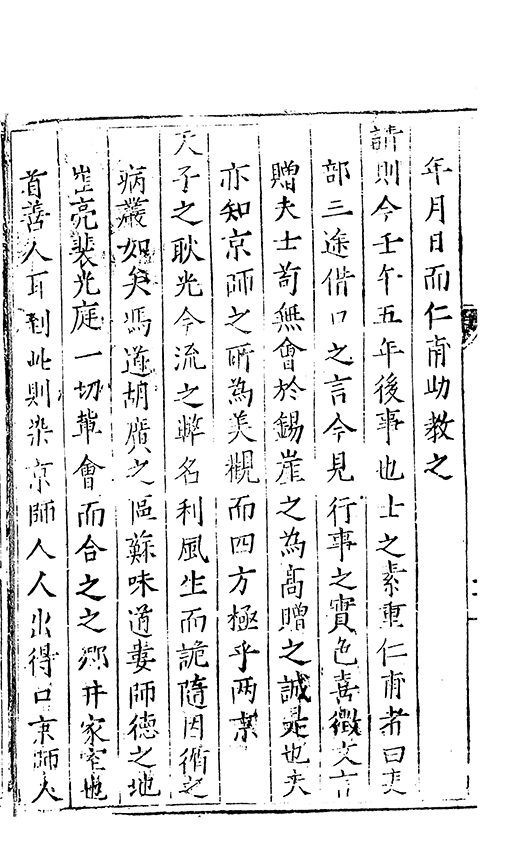 年月日而仁甫助教之
請則今壬午五年後事也士之素重仁甫者曰吏
部三途借口之言今見行事之實色喜徵文言
贈夫士苟無會於錫崖之為高贈之誠是也夫
亦知京師之所為美觀而四方極乎两京
天子之耿光今流之弊名利風生而詭隨因循之
病叢如矣馮道胡廣之區蘇味道婁師德之地
崔亮裴光庭一切軰會而合之之鄉井家室也
首善人耳到此則染京師人人出得口京師人